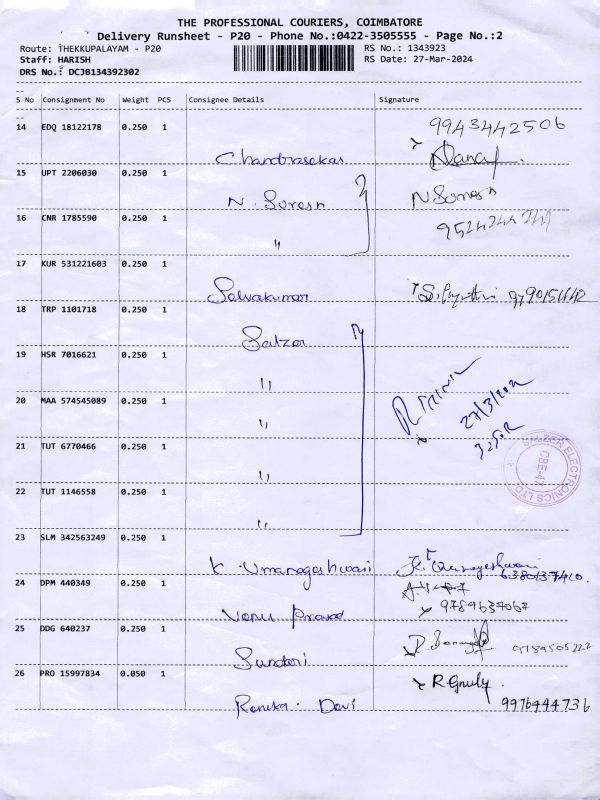 THE PROFESSIONAL COURIERS, COIMBATORE
Delivery Runsheet - P20 - Phone No.:0422-3505555 - Page No.:2
Route: THEKKUPALAYAM - P20
RS No.: 1343923
Staff: HARISH
RS Date: 27-Mar-2024
DRS No.: DCJB134392302
S No Consignment No Weight PCS Consignee Details Signature
14 EDQ 18122178 0.250 1 9943442506
Chandrasekar
15 UPT 2206030 0.250 1
N. Suresh N Suresh
16 CNR 1785590 0.250 1
"
17 KUR 531221603 0.250 1
Selvakumar
18 TRP 1101718 0.250 1
Salzer
19 HSR 7016621 0.250 1
"
20 MAA 574545089 0.250 1
" 27/3/202
21 TUT 6770466 0.250 1
" SALZER ELECTRONICS LTD
22 TUT 1146558 0.250 1
"
23 SLM 342563249 0.250 1
K. Umanageshwari
24 DPM 440349 0.250 1
9789637067
Venu Prasad
25 DDG 640237 0.250 1
Sundari
26 PRO 15997834 0.050 1
Renuka Devi 9976444736